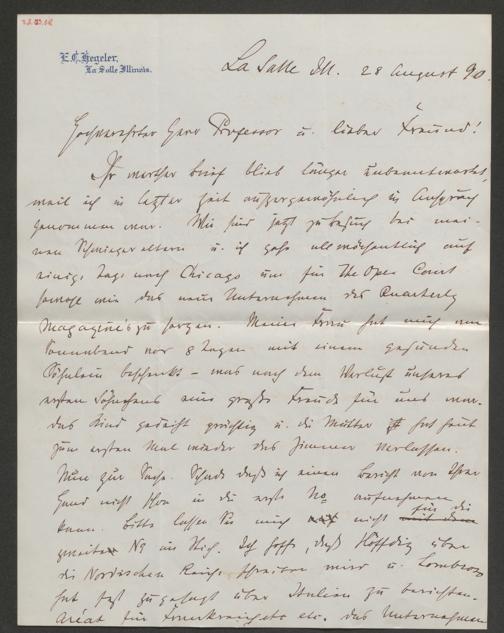 E. C. Hegeler,
La Salle Illinois.
La Salle Ill. 28 August 90.
Hochverehrter Herr Professor u. lieber Freund!
Ihr werther Brief blieb länger unbeantwortet,
weil ich in letzter Zeit außergewöhnlich in Anspruch
genommen war. Wir sind jetzt zu Besuch bei mei-
nen Schwiegereltern u. ich gehe allwöchentlich auf
einige Tage nach Chicago um für The Open Court
sowohl wie das neue Unternehmen des Quarterly
Magazine's zu sorgen. Meine Frau hat mich am
Sonnabend vor 8 Tagen mit einem gesunden
Söhnlein beschenkt – was nach dem Verlust unseres
ersten Söhnchens eine große Freude für uns war.
Das Kind gedeiht prächtig u. die Mutter hat heut
zum ersten Mal wieder das Zimmer verlassen.
Nun zur Sache. Schade daß ich einen Bericht von Ihrer
Hand nicht schon in die erste No aufnehmen
kann. Bitte lassen Sie mich nicht für die
zweite No im Stich. Ich hoffe, daß Höffding über
die Nordischen Reiche schreiben wird u. Lombroso
hat fest zugesagt über Italien zu berichten.
Aréat für Frankreich etc. Das Unternehmen